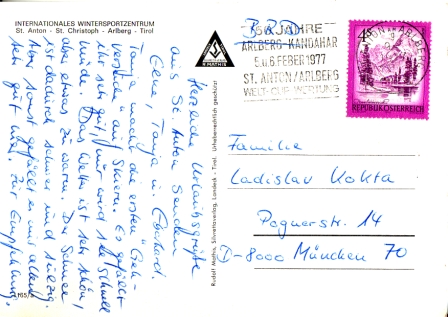 INTERNATIONALES WINTERSPORTZENTRUM
St. Anton - St. Christoph - Arlberg - Tirol
Herzliche Urlaubsgrüße
aus St. Anton senden
Tanja u. Eberhard.
Tanja macht die ersten "Geh-
versuche" auf Skiern. Es gefällt
ihr sehr gut, nur wird sie schnell
müde. Das Wetter ist sehr schön,
aber etwas zu warm. Der Schnee
ist dadurch schwer und sulzig.
Aber sonst gefällt es uns allen
sehr gut hier. Zur Empfehlung.
R. MATHIS
Rudolf Mathis, Silvrettaverlag, Landeck - Tirol. Urheberrechtlich geschützt
BRD
50 JAHRE
ARLBERG-KANDAHAR
5.u.6.FEBER 1977
ST. ANTON/ARLBERG
WELT-CUP-WERTUNG
REPUBLIK ÖSTERREICH
Familie
Ladislav Kokta
Pognerstr. 14
D-8000 München 70